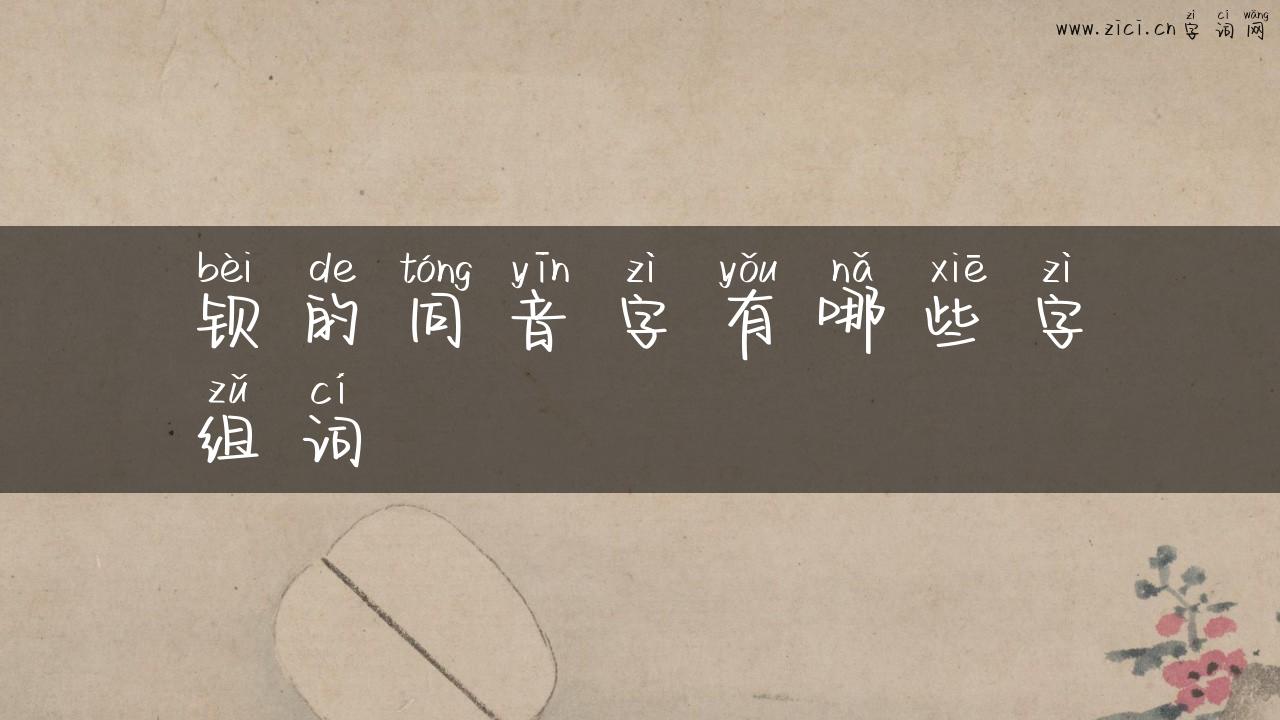 zì cí wǎng
www.zici.cn字词网
bèi de tóng yīn zì yǒu nǎ xiē zì
钡的同音字有哪些字
zǔ cí
组词